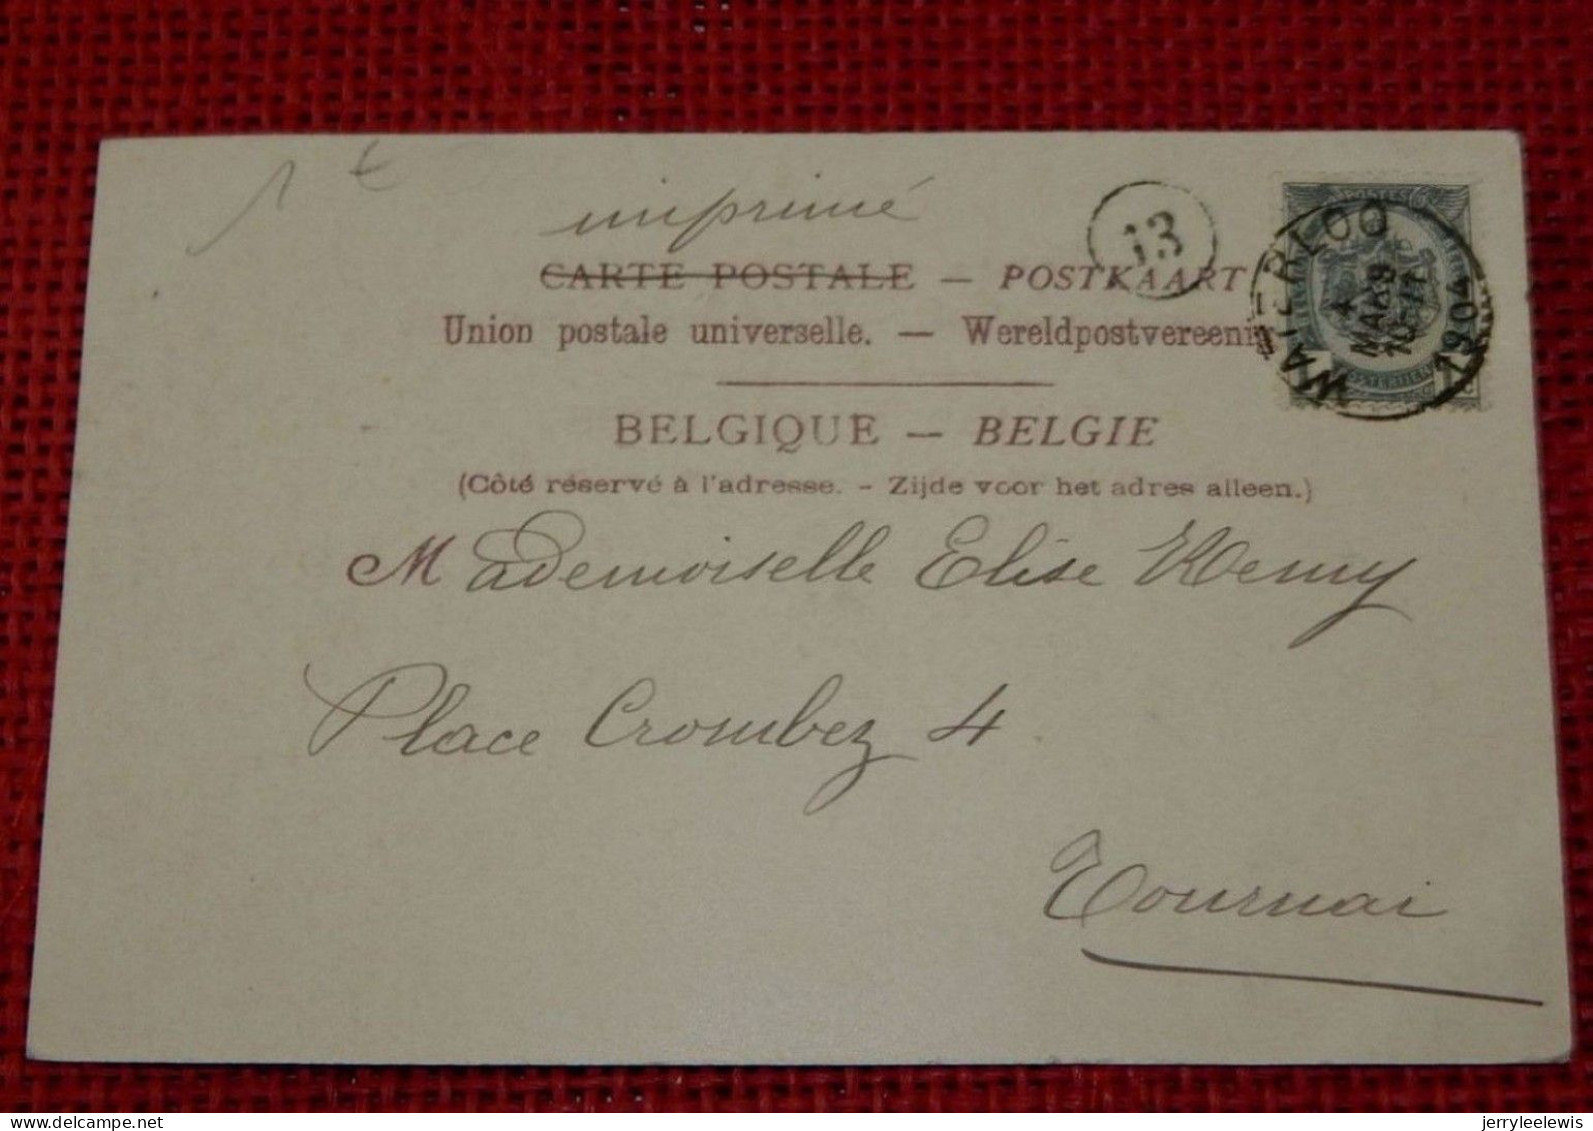 1 €
imprimé
13
CARTE POSTALE — POSTKAART
Union postale universelle. — Wereldpostvereeni
BELGIQUE — BELGIE
(Côté réservé à l'adresse. - Zijde voor het adres alleen.)
POSTES
WATERLOO
4
MAAR
10-11
1904
POSTERIJEN
Mademoiselle Elise Remy
Place Crombez 4
Tournai
www.delcampe.net
jerryleelewis